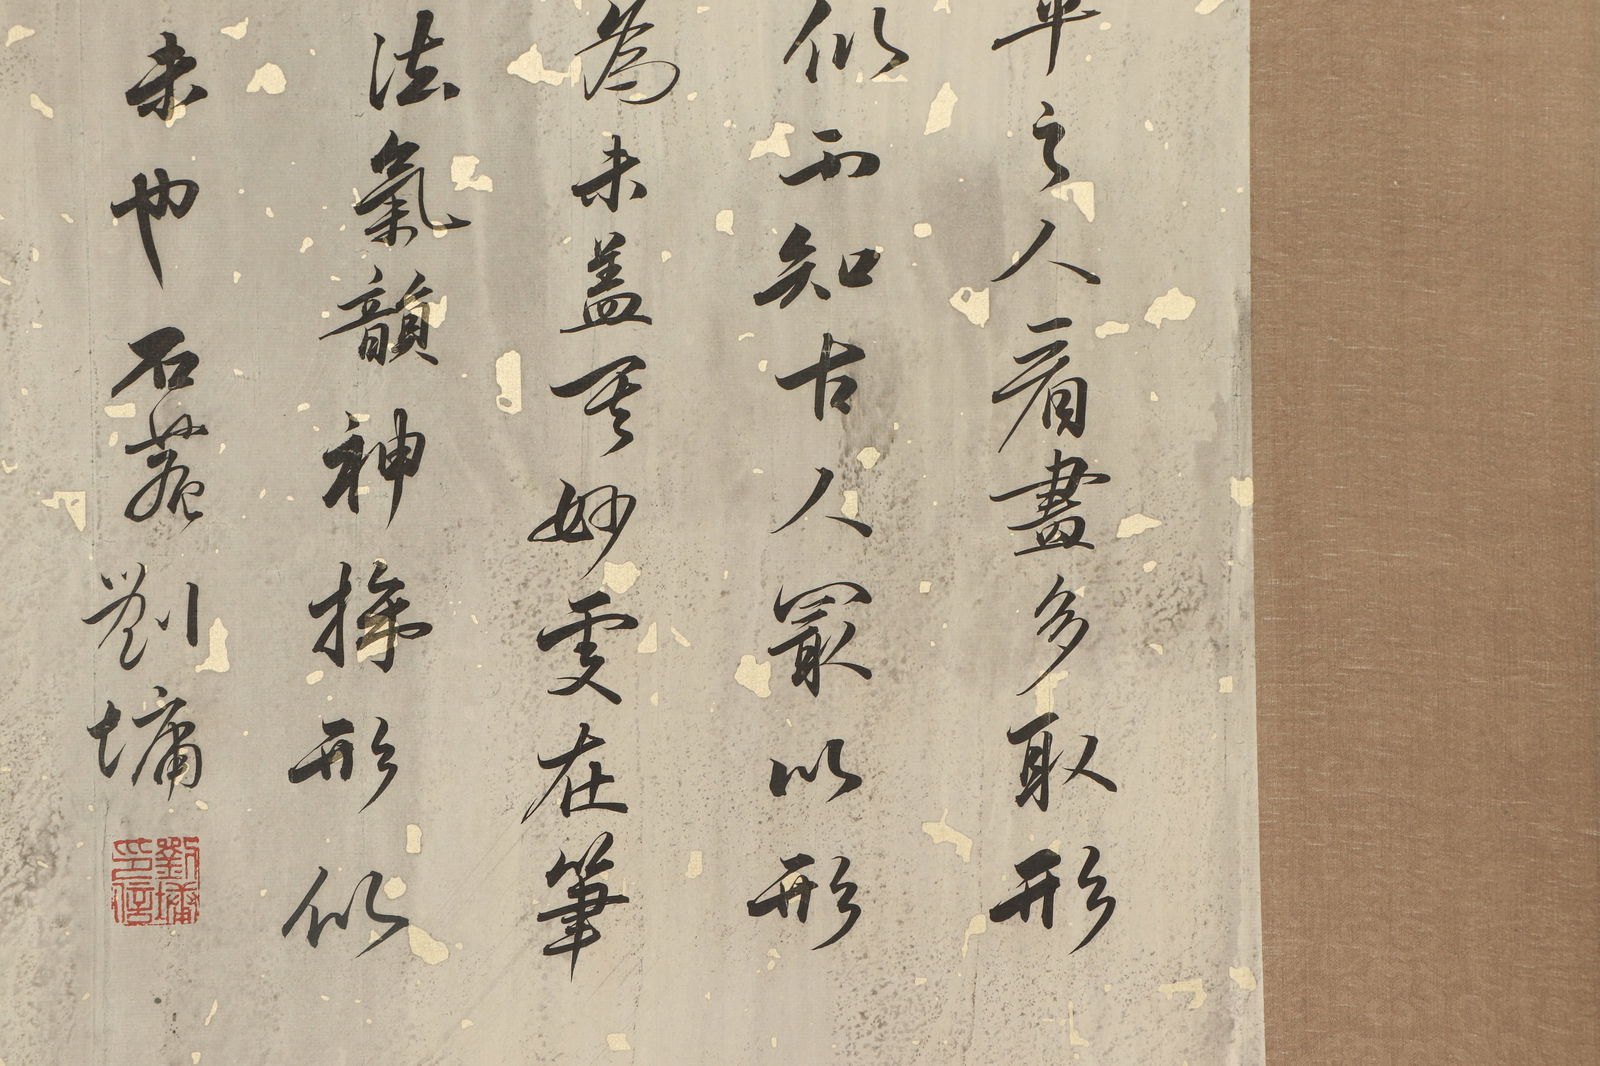 之人看畫多取形
似不知古人最以形
為末蓋其妙處在筆
法氣韻神採形似
末也 石菴劉墉
劉墉印信